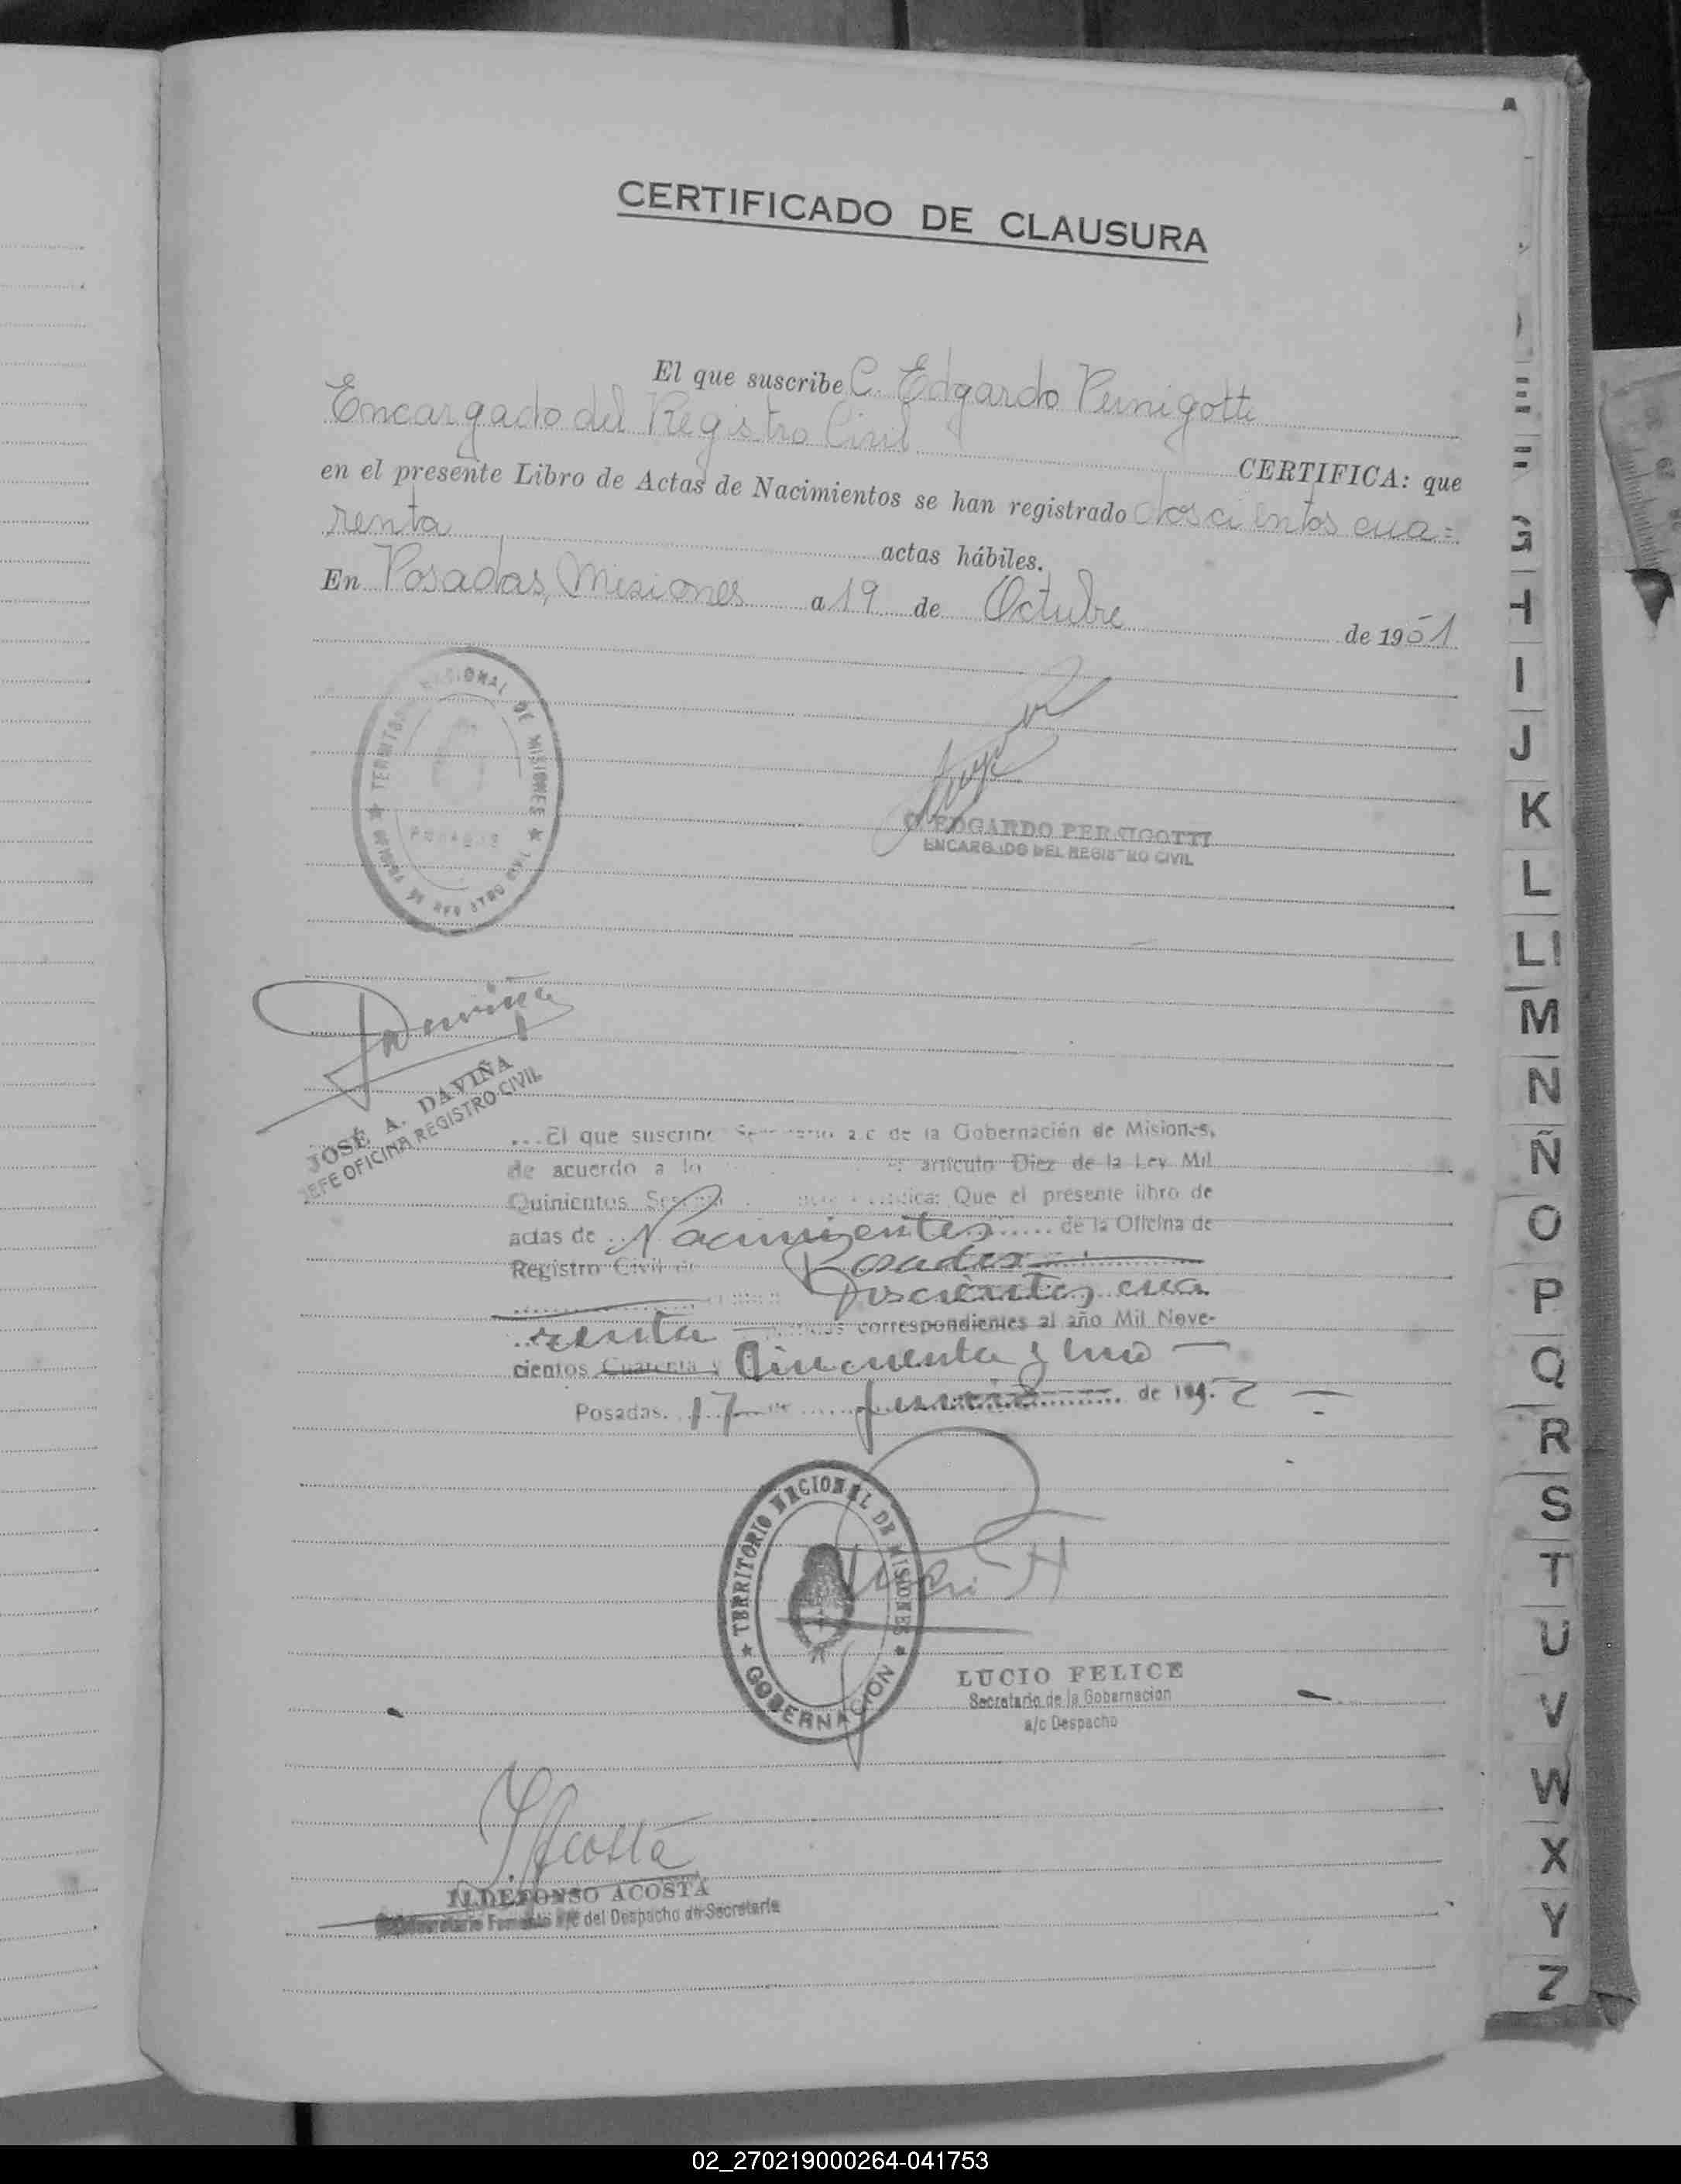 CERTIFICADO DE CLAUSURA
El que suscribe C. Edgardo Pernigotti
Encargado del Registro Civil
CERTIFICA: que
en el presente Libro de Actas de Nacimientos se han registrado doscientos cua=
renta actas hábiles.
En Posadas, Misiones a 19 de Octubre de 1951
TERRITORIO NACIONAL DE MISIONES
POSADAS
C. EDGARDO PERNIGOTTI
ENCARGADO DEL REGISTRO CIVIL
Daviña
JOSÉ A. DAVIÑA
JEFE OFICINA REGISTRO CIVIL
...El que suscribe Secretario a.c de la Gobernación de Misiones,
de acuerdo a lo artículo Diez de la Ley Mil
Quinientos Que el presente libro de
actas de Nacimientos de la Oficina de
Registro Civil de Posadas
Doscientos cua
renta correspondientes al año Mil Nove-
cientos Cuarenta y Cincuenta y uno
Posadas, 17 de de 195 2
TERRITORIO NACIONAL DE MISIONES
GOBERNACION
LUCIO FELICE
Secretario de la Gobernacion
a/c Despacho
I. Acosta
ILDEFONSO ACOSTA
Fomento a/c del Despacho de Secretaria
A
G
H
I
J
K
L
Ll
M
N
Ñ
O
P
Q
R
S
T
U
V
W
X
Y
Z
02_270219000264-041753